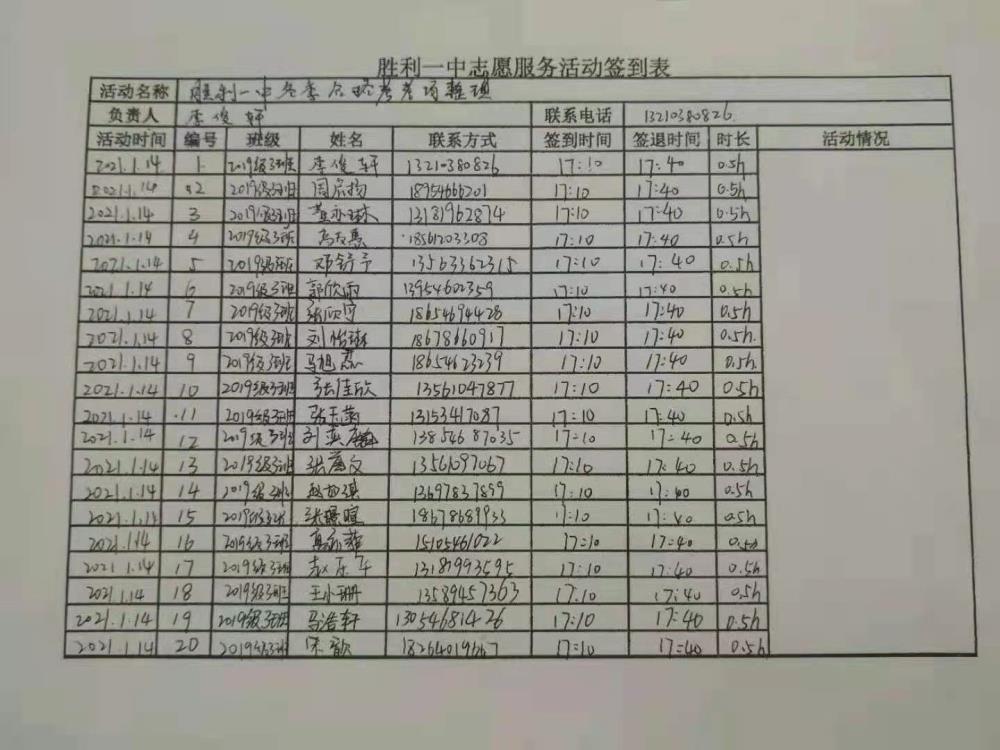 胜利一中志愿服务活动签到表
活动名称 胜利一中冬季 整理
负责人 李俊轩 联系电话 13210380826
活动时间 编号 班级 姓名 联系方式 签到时间 签退时间 时长 活动情况
2021.1.14 1 2019级3班 李俊轩 13210380826 17:10 17:40 0.5h
2021.1.14 2 2019级3班 周宸扬 18954666201 17:10 17:40 0.5h
2021.1.14 3 2019级3班 黄亦琳 13181962874 17:10 17:40 0.5h
2021.1.14 4 2019级3班 18561203308 17:10 17:40 0.5h
2021.1.14 5 2019级3班 邓舒予 13563362315 17:10 17:40 0.5h
2021.1.14 6 2019级3班 郭欣雨 13954602359 17:10 17:40 0.5h
2021.1.14 7 2019级3班 张欣宇 18654694428 17:10 17:40 0.5h
2021.1.14 8 2019级3班 刘怡琳 18678660917 17:10 17:40 0.5h
2021.1.14 9 2019级3班 马旭磊 18654623239 17:10 17:40 0.5h
2021.1.14 10 2019级3班 张佳欣 13561047877 17:10 17:40 0.5h
2021.1.14 11 2019级3班 13153417087 17:10 17:40 0.5h
2021.1.14 12 2019级3班 刘奕 13854687035 17:10 17:40 0.5h
2021.1.14 13 2019级3班 13561097067 17:10 17:40 0.5h
2021.1.14 14 2019级3班 13697837899 17:10 17:40 0.5h
2021.1.14 15 2019级3班 张璟暄 18678689933 17:10 17:40 0.5h
2021.1.14 16 2019级3班 15105461022 17:10 17:40 0.5h
2021.1.14 17 2019级3班 赵乐军 13181993595 17:10 17:40 0.5h
2021.1.14 18 2019级3班 王小珊 13589457363 17:10 17:40 0.5h
2021.1.14 19 2019级3班 马浩轩 13054681426 17:10 17:40 0.5h
2021.1.14 20 2019级3班 宋歆 18264019667 17:10 17:40 0.5h